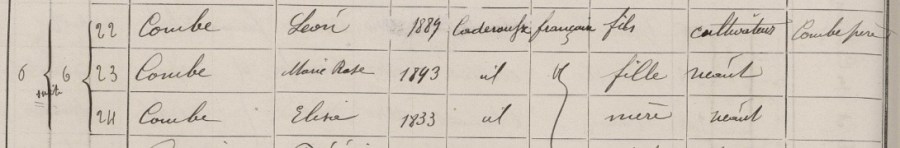 22 Combe Léon 1889 Caderousse française fils cultivateur Combe père
6 6 23 Combe Marie Rose 1893 id id fille néant
suite 24 Combe Elisie 1833 id mère néant